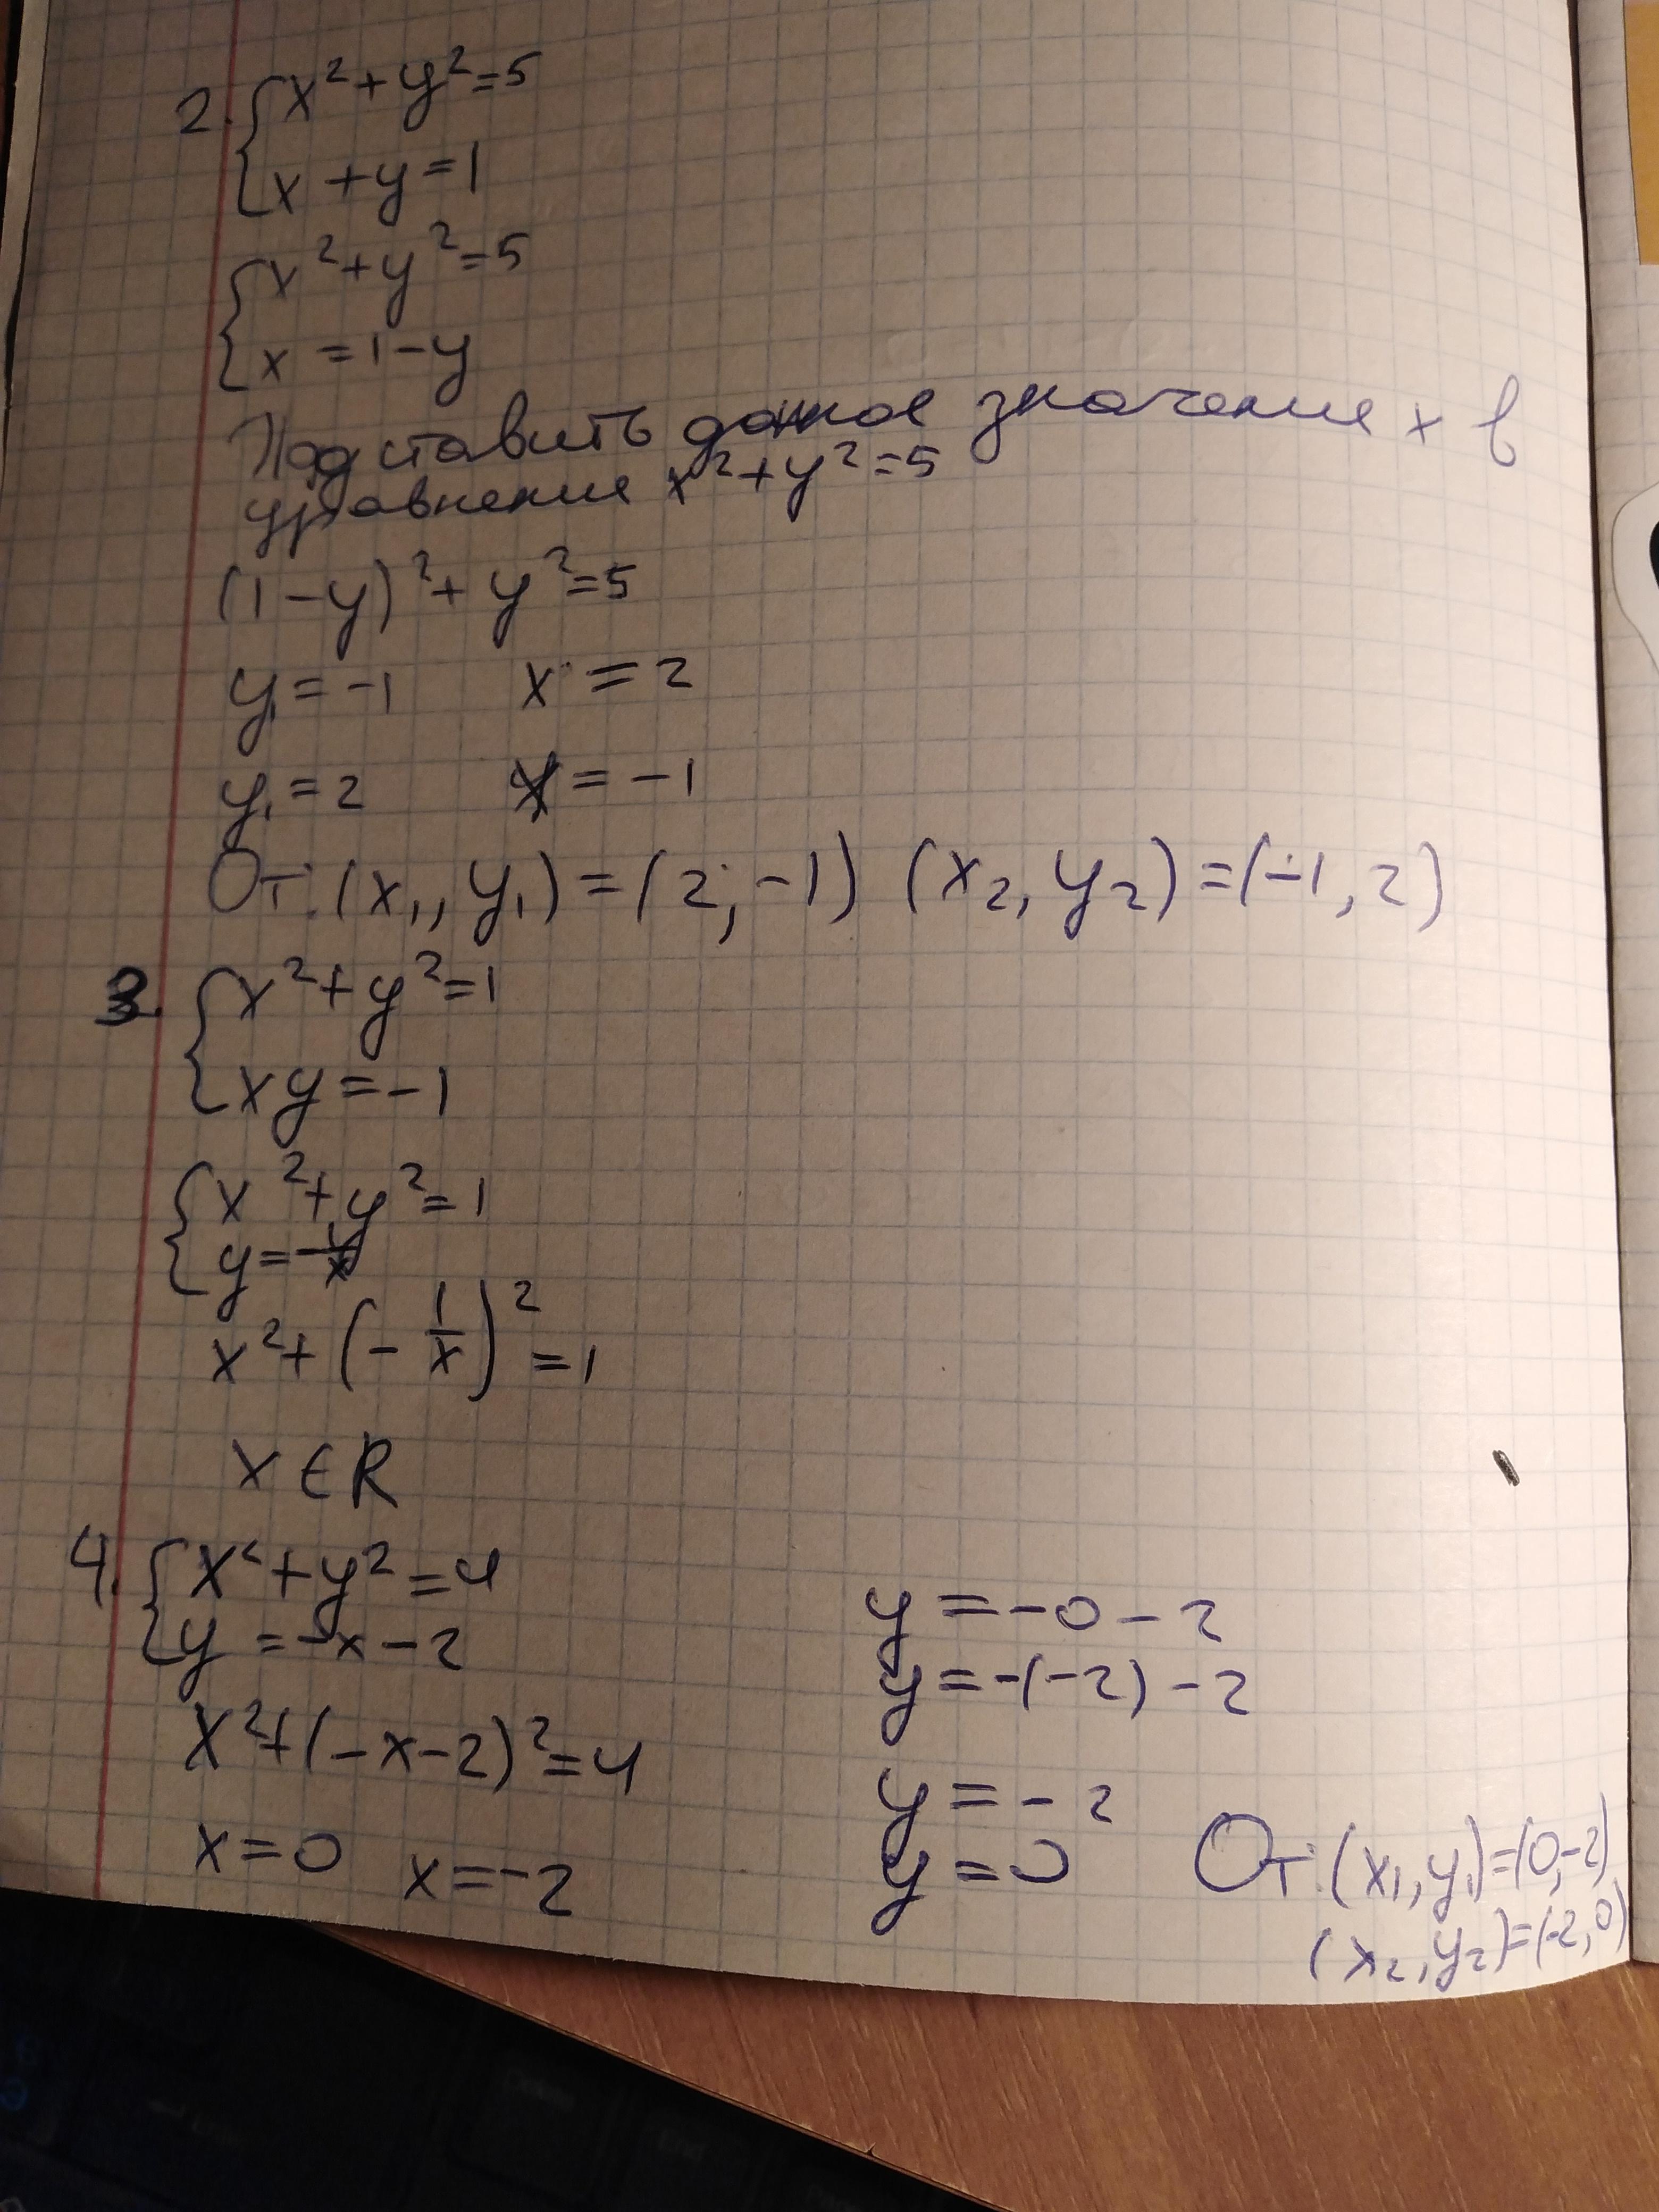 2. { x² + y² = 5
{ x + y = 1
{ x² + y² = 5
{ x = 1 - y
Подставить данное значение x в
уравнение x² + y² = 5
(1 - y)² + y² = 5
y₁ = -1 x = 2
y₁ = 2 x = -1
От: (x₁, y₁) = (2, -1) (x₂, y₂) = (-1, 2)
3. { x² + y² = 1
{ xy = -1
{ x² + y² = 1
{ y = -1/x
x² + (-1/x)² = 1
x ∈ R
4. { x² + y² = 4
{ y = -x - 2
x² + (-x - 2)² = 4
x = 0 x = -2
y = -0 - 2
y = -(-2) - 2
y = -2
y = 0
От: (x₁, y₁) = (0, -2)
(x₂, y₂) = (-2, 0)